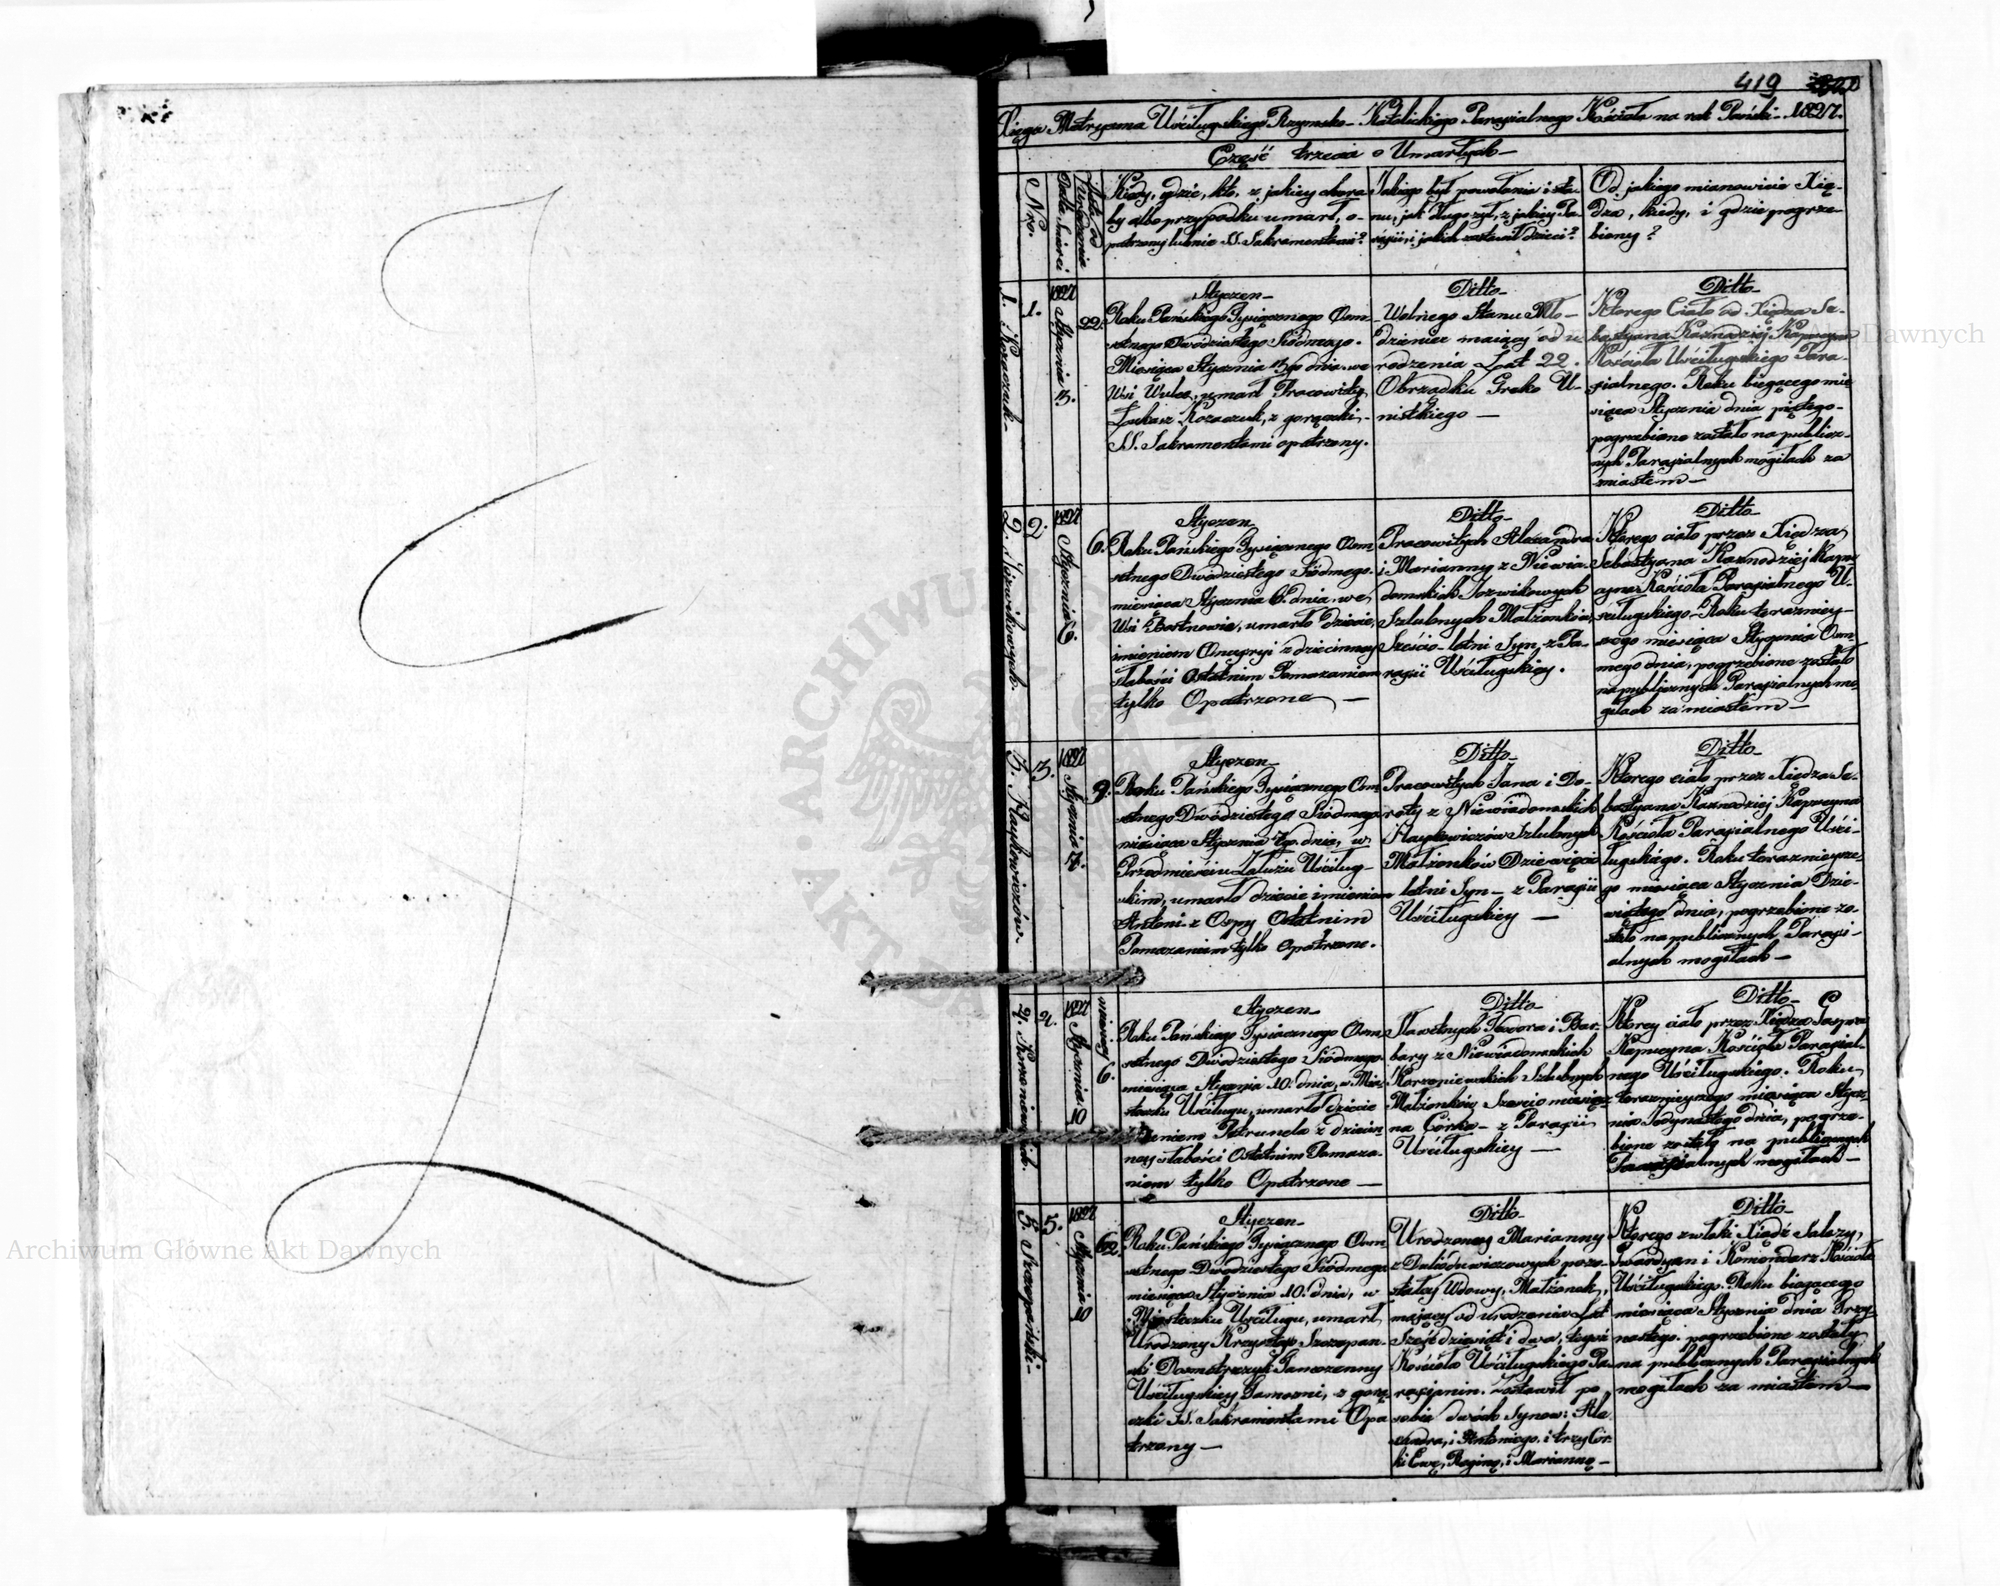 419
Xięga Metryczna Uściługskiego Rzymsko-Katolickiego Parafialnego Kościoła na rok Pański 1827.
Część trzecia o Umarłych
Nro.
Data Śmierci
Lata od Urodzenia
Kiedy, gdzie, kto, z jakiey choro-
by albo przypadku umarł, o-
patrzony lub nie SS. Sakramentami?
Jakiego był powołania i sta-
nu, jak długo żył, z jakiey Pa-
rafii, i jakich zostawił dzieci?
Od jakiego mianowicie Xię-
dza, kiedy, i gdzie pogrze-
biony?
1. Kozaczuk
1.
1827 Stycznia 3.
22.
Styczen
Roku Pańskiego Tysiącznego Ośm-
setnego Dwódziestego Siódmego.
Miesiąca Stycznia 3go dnia, we
Wsi Wulce, umarł Pracowity
Łukasz Kozaczuk, z gorączki,
SS. Sakramentami opatrzony.
Ditto
Wolnego Stanu Mło-
dzieniec maiący od u-
rodzenia Lat 22.
Obrządku Greko U-
nistkiego
Ditto
Którego Ciało od Xiędza Se-
bastyana Kaznodziei Kapucyna
Kościoła Uściługskiego Para-
fialnego. Roku bieżącego mie-
siąca Stycznia dnia piątego
pogrzebione zostało na publicz-
nych Parafialnych mogiłach za
miastem
2. Jozwikowych
2.
1827 Stycznia 6.
6.
Styczen
Roku Pańskiego Tysiącznego Ośm
setnego Dwódziestego Siódmego.
miesiąca Stycznia 6. dnia, we
Wsi umarło dziecie,
imieniem Onufryi z dziecinney
słabości Ostatnim Pomazaniem
tylko Opatrzone
Ditto
Pracowitych Alexandra
i Marianny z Niewia-
domskich Jozwikowych
Szlubnych Małżonków,
Sześcio-letni Syn, z Pa-
rafii Uściługskiey.
Ditto
Którego ciało przez Xiędza
Sebastyana Kaznodziej Kapu-
cyna Kościoła Parafialnego U-
ściługskiego. Roku teraźniey-
szego miesiąca Stycznia Osm-
mego dnia, pogrzebione zostało
na publicznych Parafialnych mo-
giłach za miastem
3. Haykowiczów
3.
1827 Stycznia 7.
9.
Styczen
Roku Pańskiego Tysiącznego Ośm
setnego Dwódziestego Siódmego
miesiąca Stycznia 7go dnia, w
Przedmieściu Załużu Uściług-
skim, umarło dziecie imieniem
Antoni z Ospy Ostatnim
Pomazaniem tylko Opatrzone.
Ditto
Pracowitych Jana i Do-
roty z Niewiadomskich
Haykowiczów Szlubnych
Małżonków Dziewięcio
letni Syn z Parafii
Uściługskiey
Ditto
Którego ciało przez Xiędza Se-
bastyana Kaznodziej Kapucyna
Kościoła Parafialnego Uści-
ługskiego. Roku teraznieysze-
go miesiąca Stycznia Dzie-
wiątego dnia, pogrzebione zo-
stało na publicznych Parafi-
alnych mogiłach
4. Korzeniewskich
4.
1827 Stycznia 10
miesięcy 6.
Styczen
Roku Pańskiego Tysiącznego Ośm
setnego Dwódziestego Siódmego
miesiąca Stycznia 10. dnia, w Mia-
steczku Uściługu, umarło dziecie
imieniem Petrunela z dziecin-
ney słabości Ostatnim Pomaza-
niem tylko Opatrzone
Ditto
Sławetnych Teodora i Bar-
bary z Niewiadomskich
Korzeniewskich Szlubnych
Małżonków Szescio miesięcz-
na Córka z Parafii
Uściługskiey
Ditto
Którey ciało przez Xiędza Gaspra
Kapucyna Kościoła Parafial-
nego Uściługskiego. Roku
teraznieyszego miesiąca Stycz-
nia Jedynastego dnia, pogrze-
bione zostało na publicznych
Parafialnych mogiłach
5. Szczepański
5.
1827 Stycznia 10
62
Styczen
Roku Pańskiego Tysiącznego Ośm
setnego Dwódziestego Siódmego
miesiąca Stycznia 10. dnia, w
Miasteczku Uściługu, umarł
Urodzony Krzysztof Szczepań-
ski Tamożenny
Uściługskiey Tamożni, z gorą-
czki SS. Sakramentami Opa-
trzony
Ditto
Urodzoney Marianny
z pozo-
stałey Wdowy, Małżonek,
mający od urodzenia Lat
Sześćdziesiąt i dwa, tegoż
Kościoła Uściługskiego Pa-
rafjanin. Zostawił po
sobie dwóch Synow: Ale-
xandra, i Antoniego, i trzy Cór-
ki Ewę, Reginę, i Mariannę
Ditto
Którego zwłoki Xiądz Salezy,
Gwardyan i Komendarz Kościoła
Uściługskiego. Roku bieżącego
miesiąca Stycznia dnia trzy-
nastego. pogrzebione zostały
na publicznych Parafialnych
mogiłach za miastem
Archiwum Główne Akt Dawnych